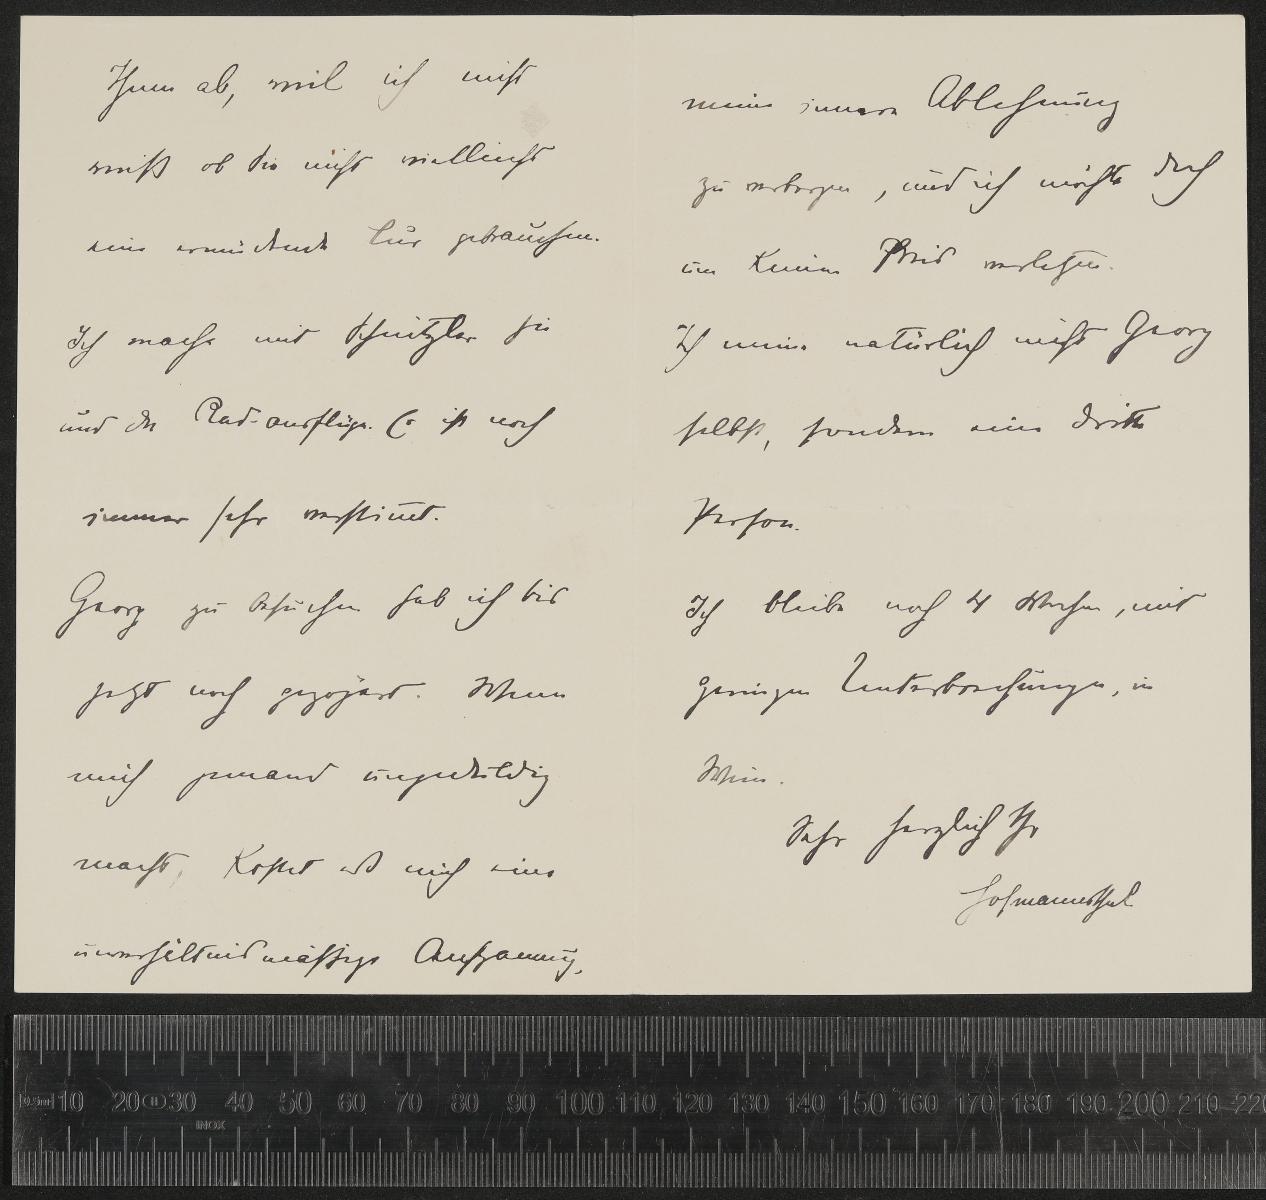 Ihnen ab, weil ich nicht
weiß ob Sie nicht vielleicht
eine ermüdende Cur gebrauchen.
Ich mache mit Schnitzler hie
und da Rad-ausflüge. Er ist noch
immer sehr verstimmt.
Georg zu besuchen hab ich bis
jetzt noch gezögert. Wenn
mich jemand ungeduldig
macht, kostet es mich eine
unverhältnismässige Anspannung,
meine innere Ablehnung
zu verbergen, und ich möchte doch
um keinen Preis verletzen.
Ich meine natürlich nicht Georg
selbst, sondern eine dritte
Person.
Ich bleibe noch 4 Wochen, mit
geringen Unterbrechungen, in
Wien.
Sehr herzlich Ihr
Hofmannsthal
10 20 30 40 50 60 70 80 90 100 110 120 130 140 150 160 170 180 190 200 210 220
INOX